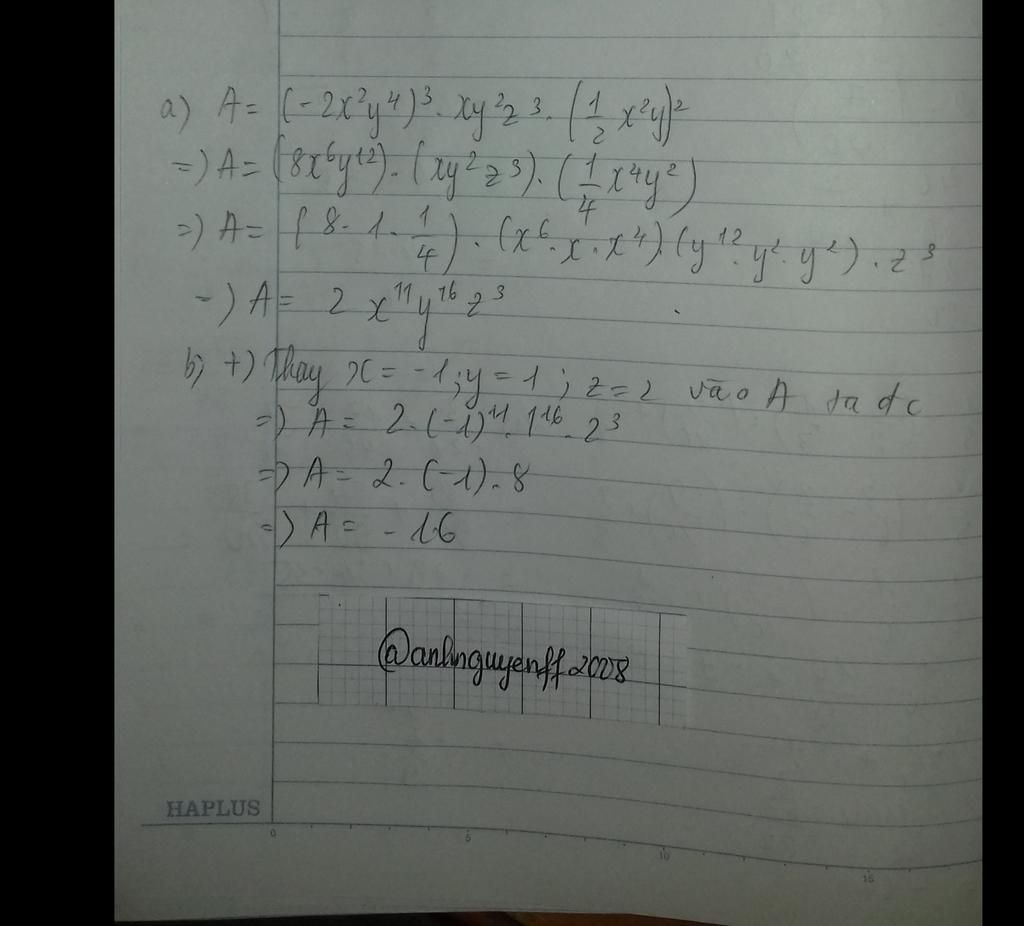 a) A = (-2x²y⁴)³ . xy²z³ . (1/2 x²y)²
=) A = (8x⁶y¹²) . (xy²z³) . (1/4 x⁴y²)
=) A = (8 . 1 . 1/4) . (x⁶ . x . x⁴) . (y¹² . y² . y²) . z³
-) A = 2 x¹¹y¹⁶z³
b) +) Thay x = -1 ; y = 1 ; z = 2 vào A ta dc
=) A = 2 . (-1)¹¹ . 1¹⁶ . 2³
=) A = 2 . (-1) . 8
=) A = -16
@anhnguyenff2008
HAPLUS
0 5 10 15